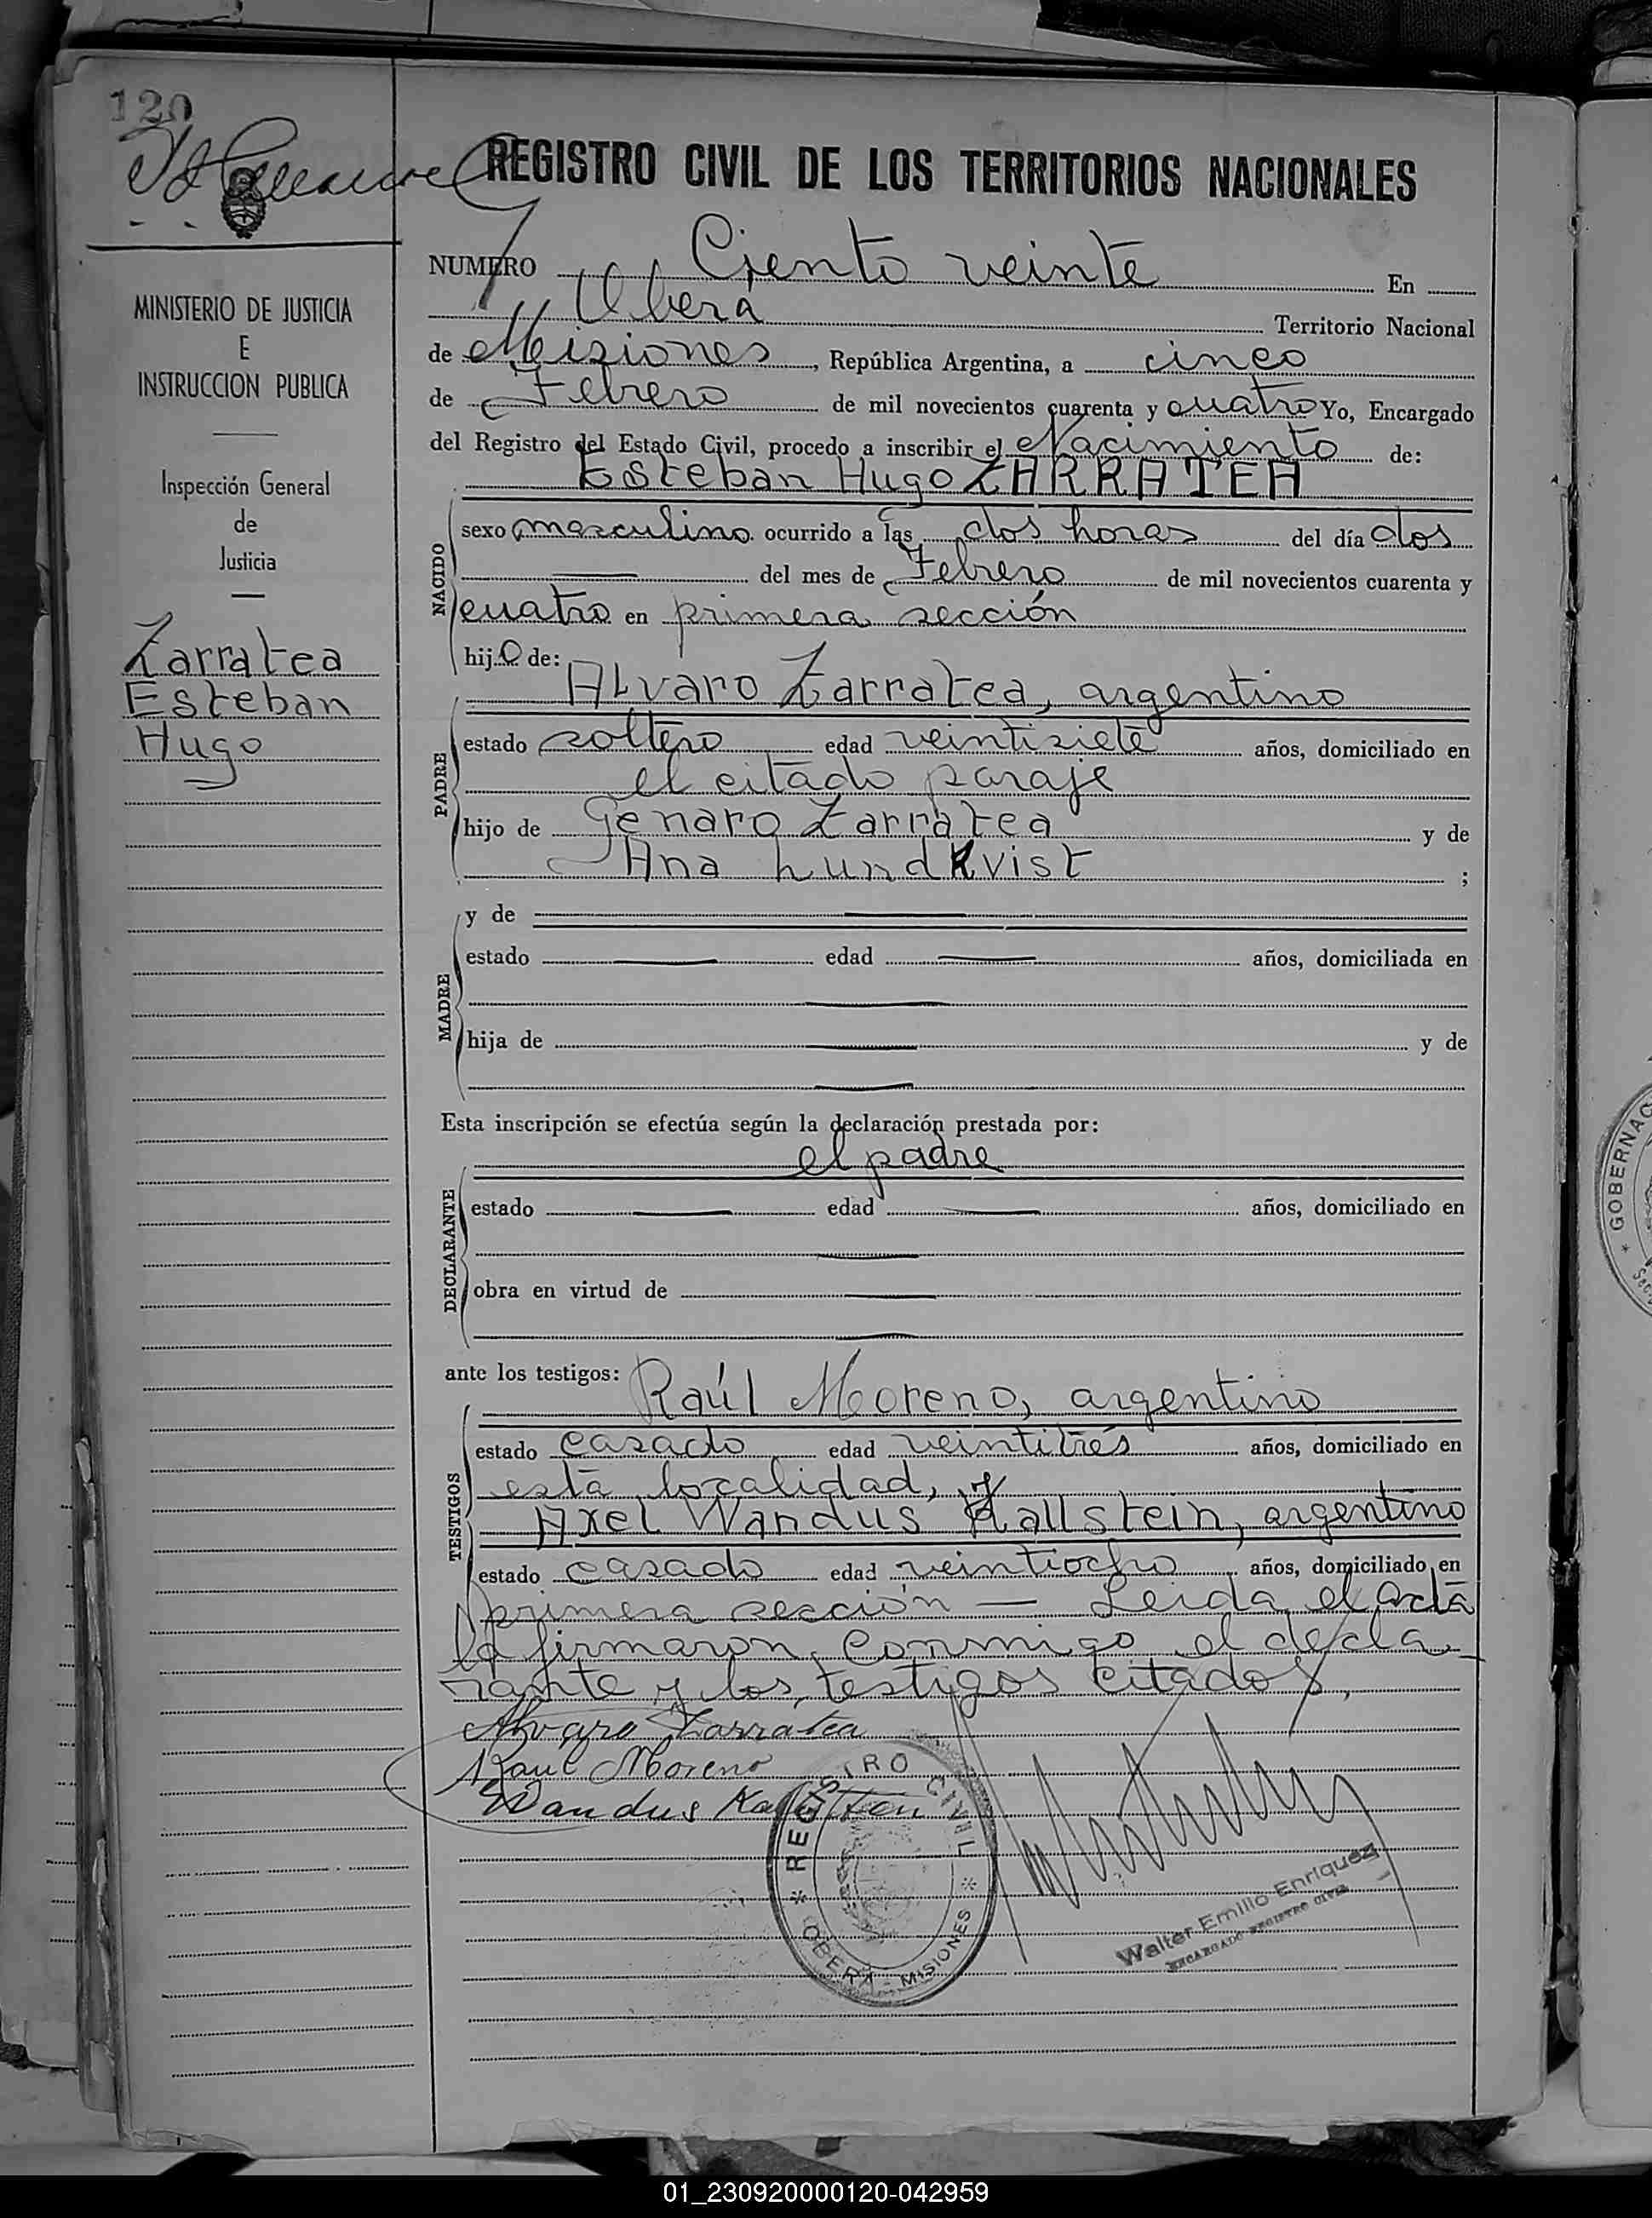 120
REGISTRO CIVIL DE LOS TERRITORIOS NACIONALES
NUMERO Ciento veinte En
Oberá Territorio Nacional
de Misiones, República Argentina, a cinco
de Febrero de mil novecientos cuarenta y cuatro Yo, Encargado
del Registro del Estado Civil, procedo a inscribir el Nacimiento de:
Esteban Hugo ZARRATEA
NACIDO
sexo masculino. ocurrido a las dos horas del día dos
del mes de Febrero de mil novecientos cuarenta y
cuatro en primera sección
hijo de:
PADRE
Alvaro Zarratea, argentino
estado soltero edad veintisiete años, domiciliado en
el citado paraje
hijo de Genaro Zarratea y de
Ana Lundkvist ;
MADRE
y de
estado edad años, domiciliada en
hija de y de
Esta inscripción se efectúa según la declaración prestada por:
el padre
DECLARANTE
estado edad años, domiciliado en
obra en virtud de
ante los testigos:
TESTIGOS
Raúl Moreno, argentino
estado casado edad veintitrés años, domiciliado en
esta localidad, y
Axel Wandus Kallstein, argentino
estado casado edad veintiocho años, domiciliado en
primera sección — Leida el acta
la firmaron conmigo el decla-
rante y los testigos citados,
Alvaro Zarratea
Raúl Moreno
Wandus Kallsten
REGISTRO CIVIL
* OBERÁ - MISIONES *
Walter Emilio Enriquez
ENCARGADO REGISTRO CIVIL
MINISTERIO DE JUSTICIA
E
INSTRUCCION PUBLICA
Inspección General
de
Justicia
Zarratea
Esteban
Hugo
* GOBERNAC
01_230920000120-042959